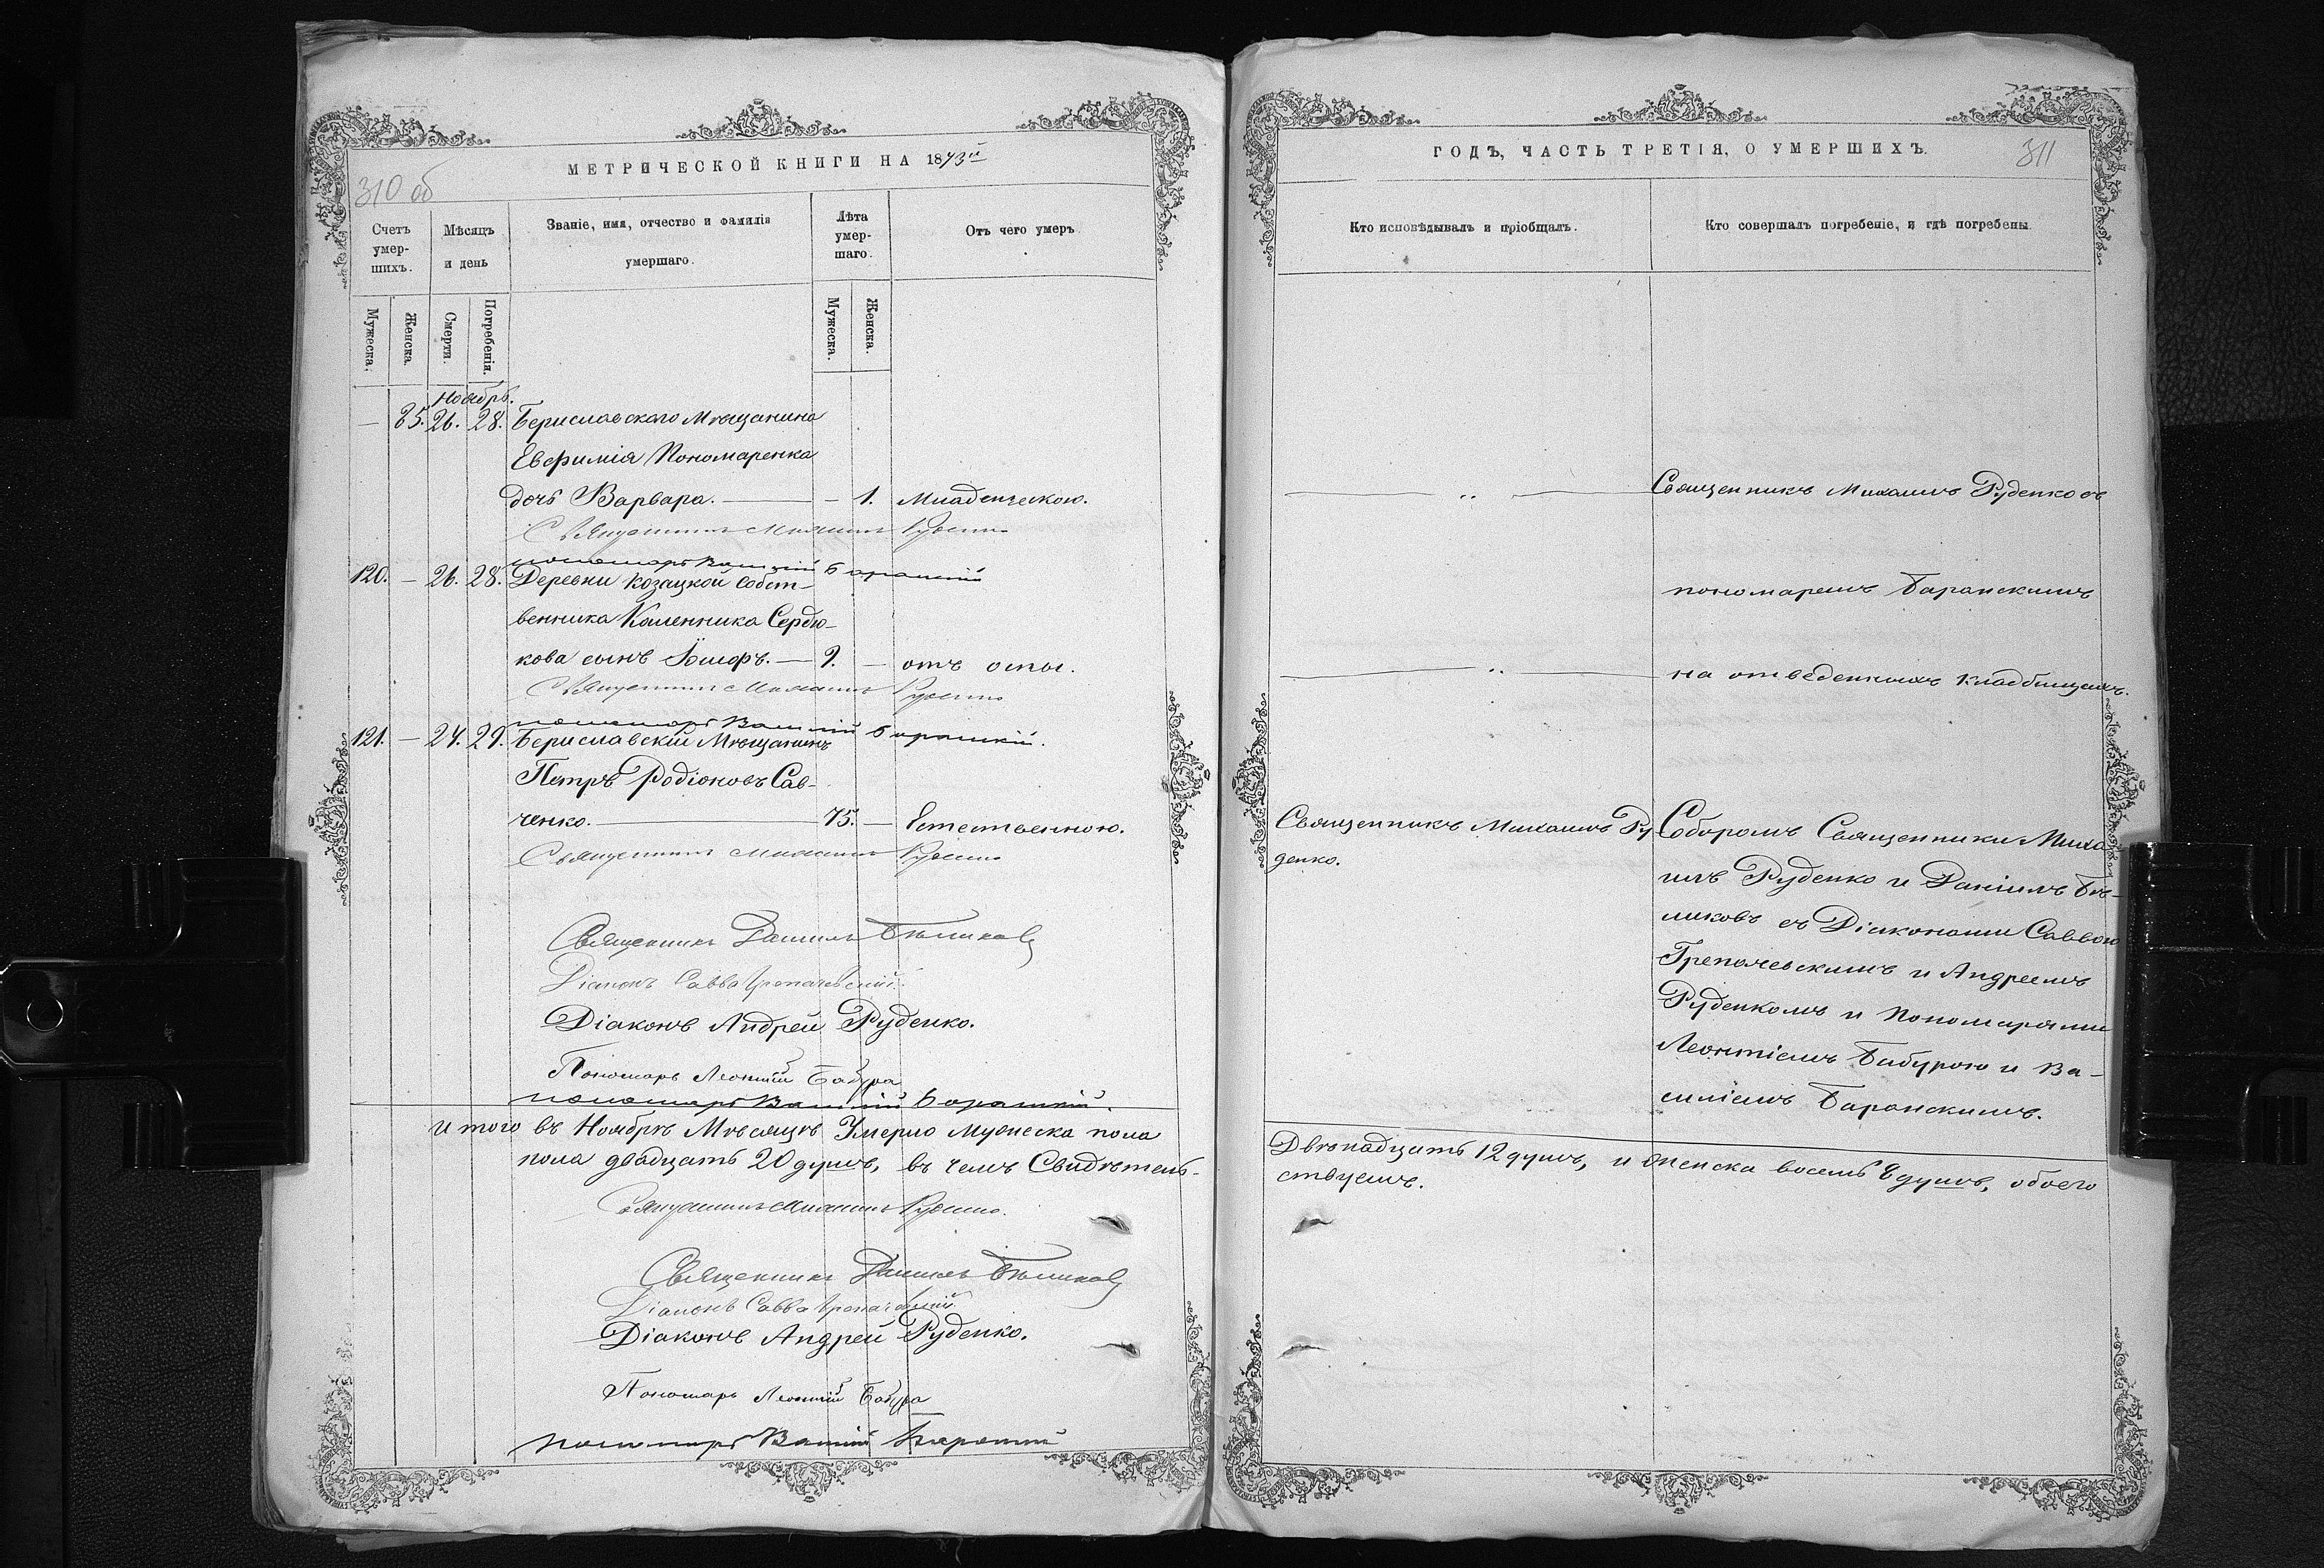 МЕТРИЧЕСКОЙ КНИГИ НА 1873й
310 об
Счетъ умер-шихъ.
Мѣсяцъ и день
Званіе, имя, отчество и фамилія умершаго.
Лѣта умер-шаго.
Отъ чего умеръ
Мужеска.
Женска.
Смерти.
Погребенія.
Мужеска.
Женска.
Ноябрь.
— 85. 26. 28. Бериславскаго Мѣщанина
Евфимія Пономаренка
дочь Варвара. — — 1. Младенческою.
Священникъ Михаилъ Руденко
пономарь Василій Баранскій
120. — 26. 28. Деревни Козацкой собст-
венника Калинника Сердю-
кова сынъ Іосифъ. — 9. — отъ оспы.
Священникъ Михаилъ Руденко
пономарь Василій Баранскій.
121. — 27. 29. Бериславскій Мѣщанинъ
Петръ Родіоновъ Сав-
ченко. — 75. — Естественною.
Священникъ Михаилъ Руденко
Священникъ Даніилъ Бѣликовъ
Діаконъ Савва Грепачевскій
Діаконъ Андрей Руденко.
Пономарь Леонтій Бабура
пономарь Василій Баранскій.
Итого въ Ноябрѣ Мѣсяцѣ Умерло Мужеска пола
пола двадцать 20 душъ, въ чемъ Свидѣтель-
Священникъ Михаилъ Руденко.
Священникъ Даніилъ Бѣликовъ
Діаконъ Савва Грепачевскій
Діаконъ Андрей Руденко.
Пономарь Леонтій Бабура
пономарь Василій Баранскій
ГОДЪ, ЧАСТЬ ТРЕТІЯ, О УМЕРШИХЪ.
311
Кто исповѣдывалъ и пріобщалъ.
Кто совершалъ погребеніе, и гдѣ погребены.
Священникъ Михаилъ Руденко съ
пономаремъ Баранскимъ
на отведенныхъ кладбищахъ.
Священникъ Михаилъ Ру-
денко.
Соборомъ Священники Миха-
илъ Руденко и Даніилъ Бѣ-
ликовъ съ Діаконами Саввою
Грепачевскимъ и Андреемъ
Руденкомъ и Пономарями
Леонтіемъ Бабурою и Ва-
силіемъ Баранскимъ.
Двѣнадцать 12 душъ, и Женска восемь 8 душъ, обоего
ствуемъ.